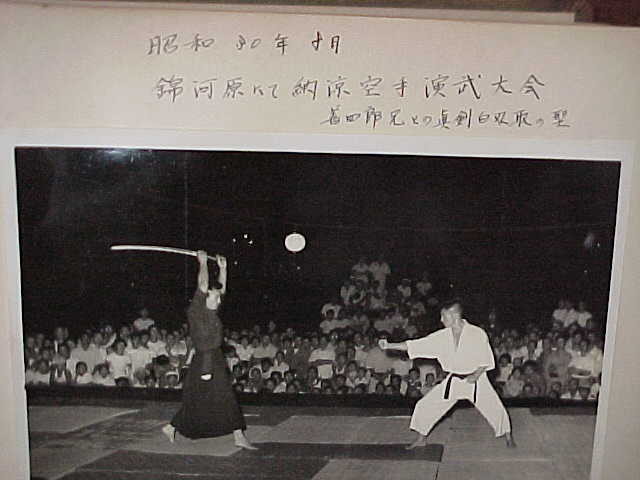 昭和30年8月
錦河原にて納涼空手演武大会
首四郎兄との真剣白刃取の型